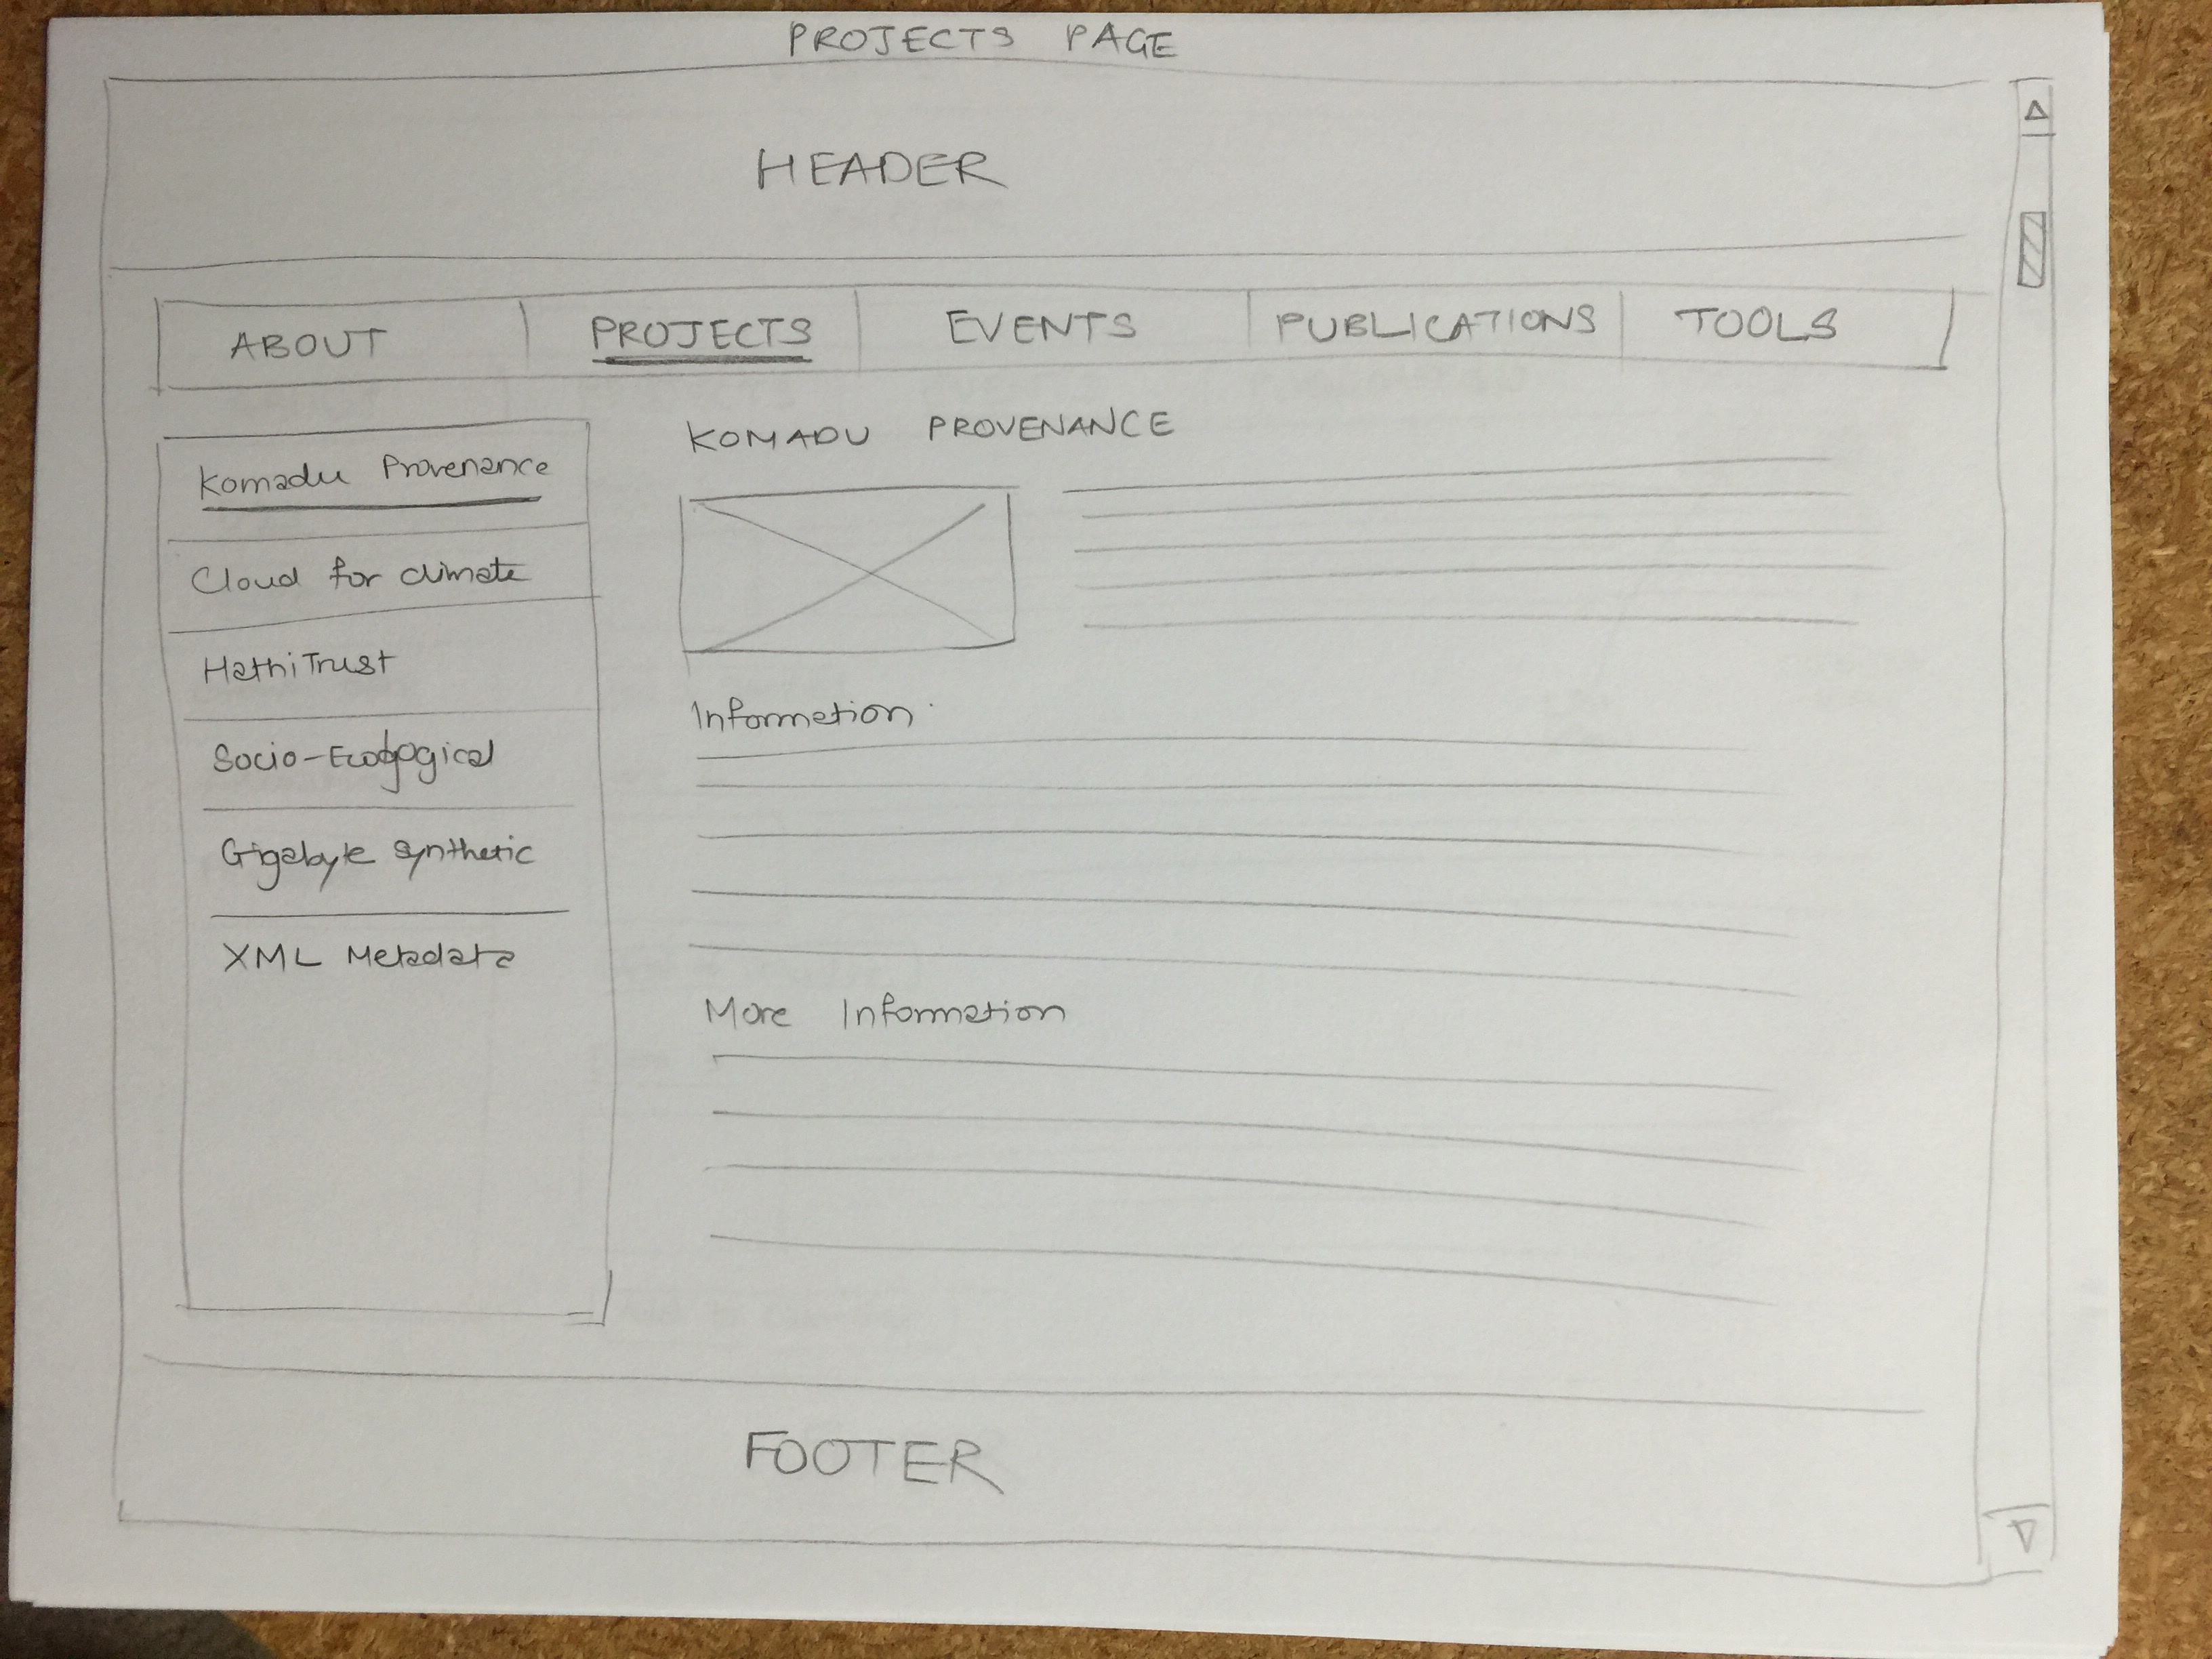 PROJECTS PAGE
HEADER
ABOUT PROJECTS EVENTS PUBLICATIONS TOOLS
Komadu Provenance
Cloud for climate
HathiTrust
Socio-Ecological
Gigabyte synthetic
XML Metadata
KOMADU PROVENANCE
Information
More Information
FOOTER